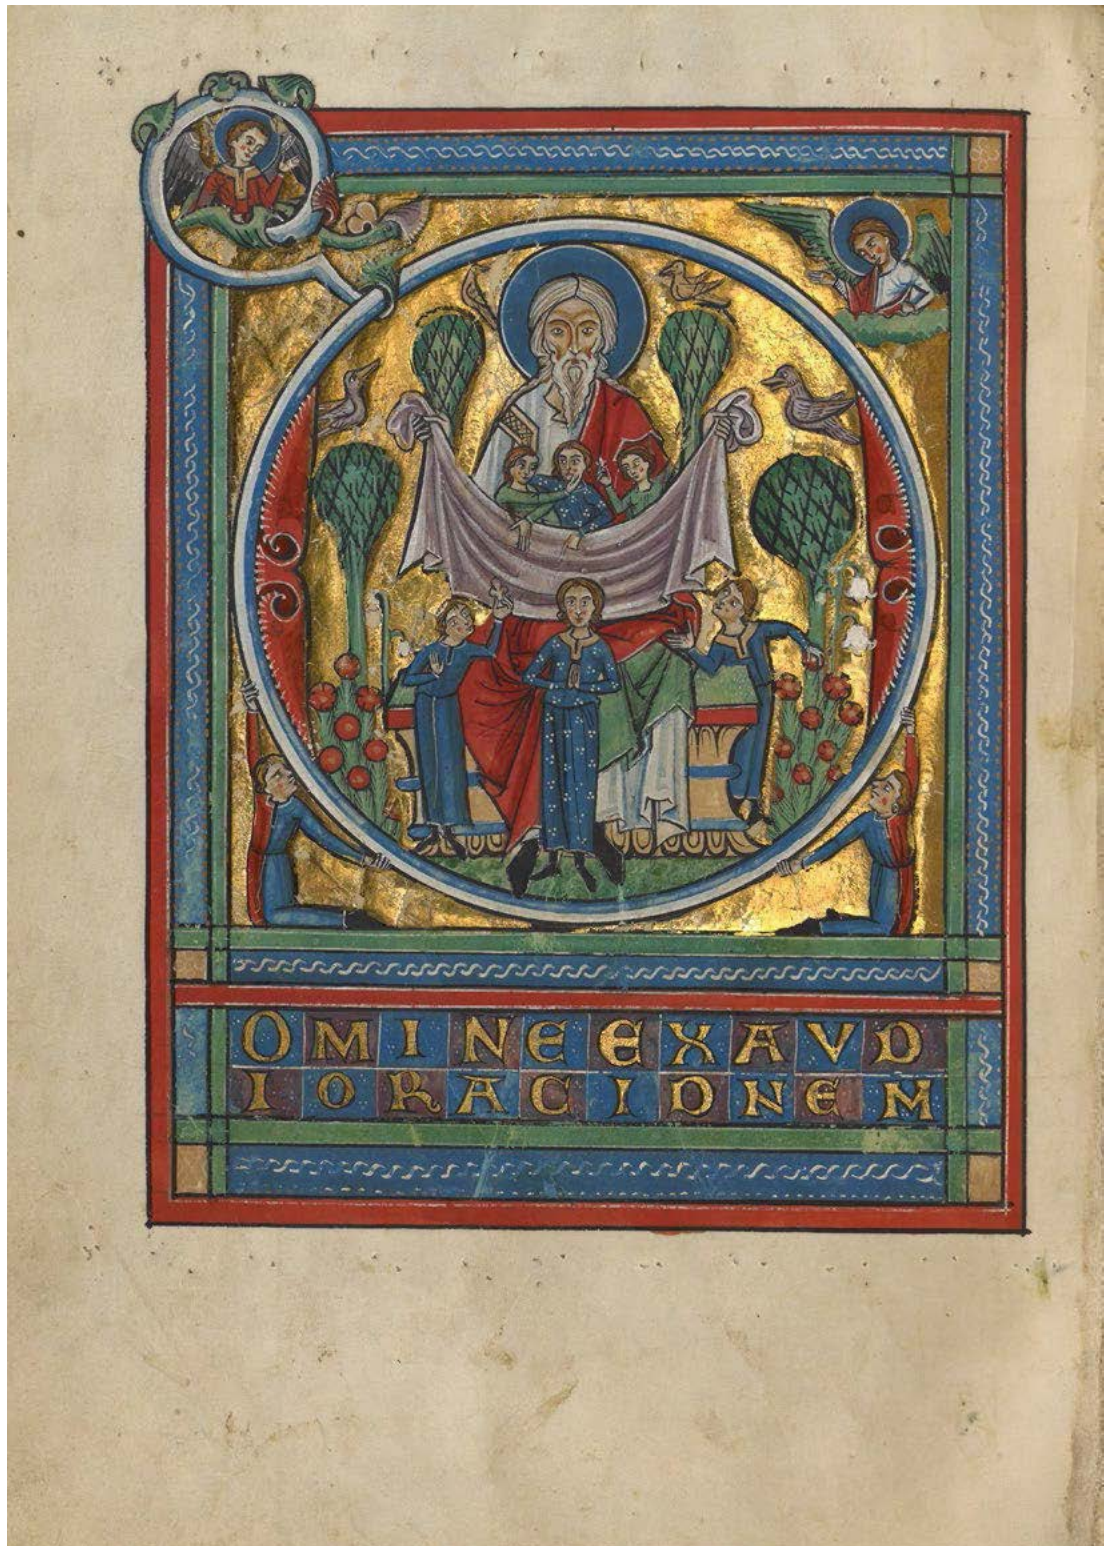 D
OMINE EXAVD
I ORACIDNEM